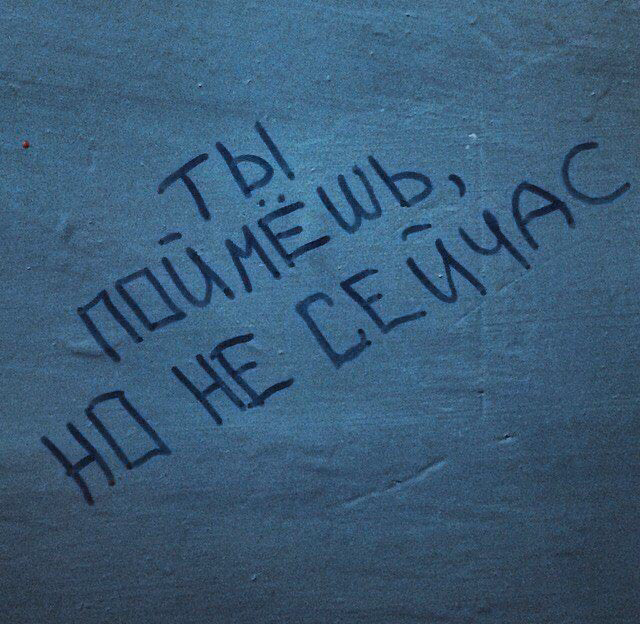 ТЫ
ПОЙМЁШЬ,
НО НЕ СЕЙЧАС